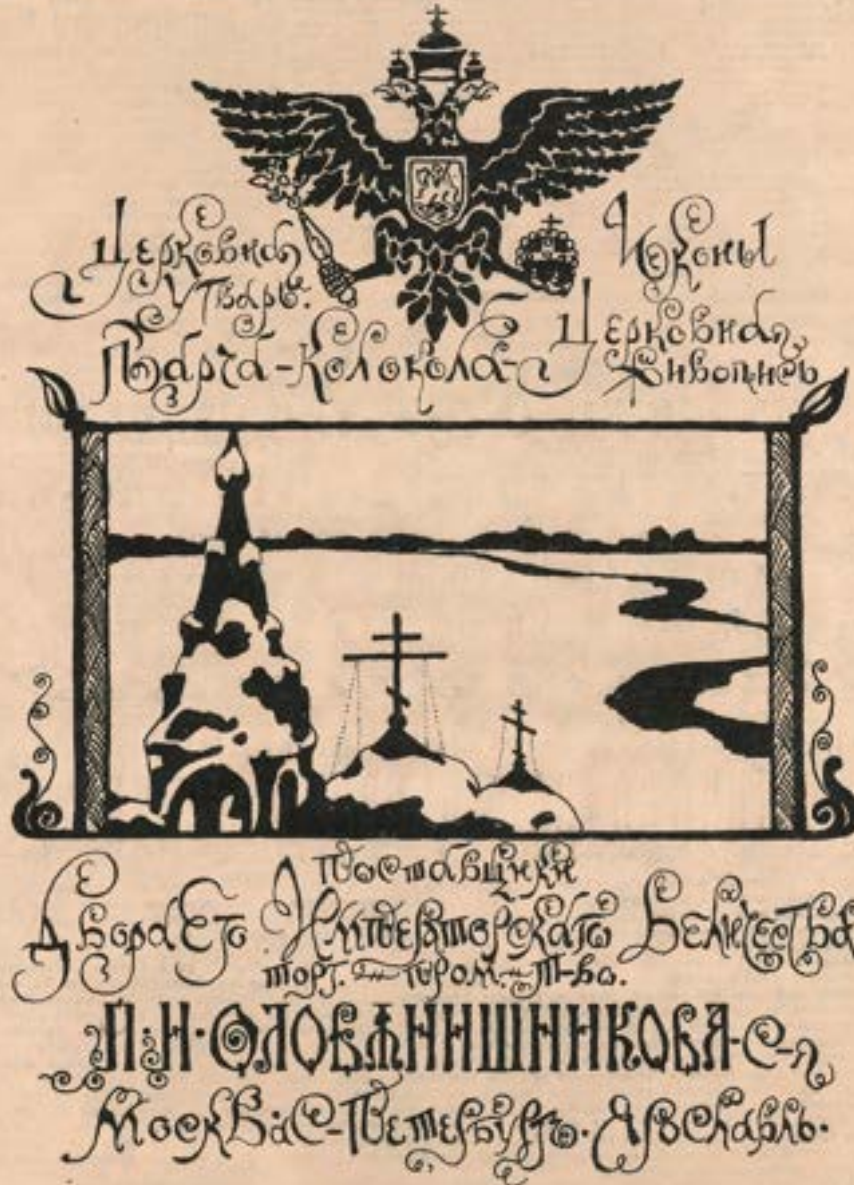 Церковная Иконы
утварь.
Парча-Колокола-Церковная
живопись
Поставщики
Двора Его Императорскаго Величества
торг.-пром.-т-во.
П·И·ОЛОВѦНИШНИКОВА·С-я
Москва·С-Петербургъ·Ярославль·